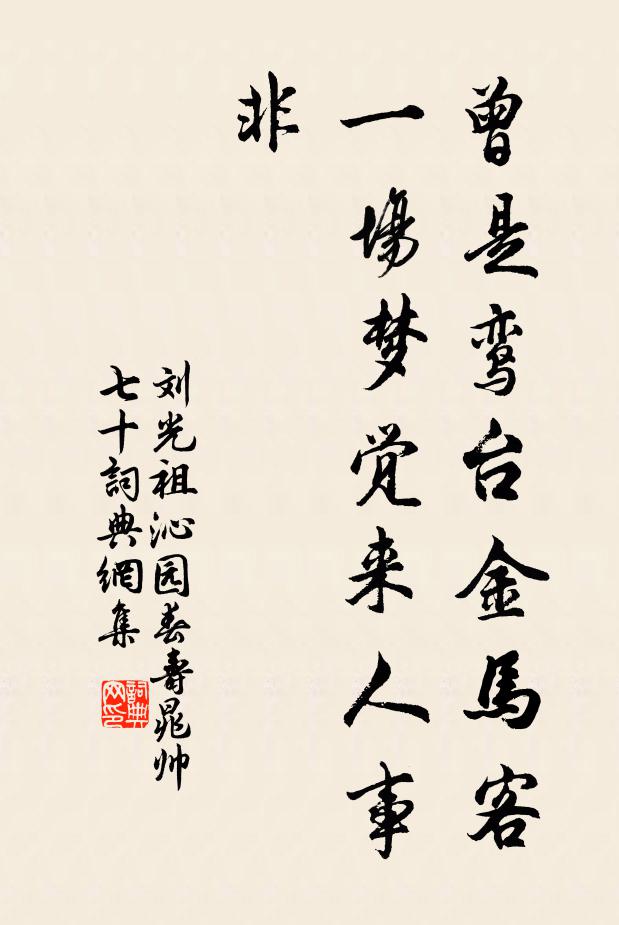 曾是鸾台金馬客
一場梦觉来人事
非
刘光祖沁园春寿晁帅
七十詞典網集
詞典
网印